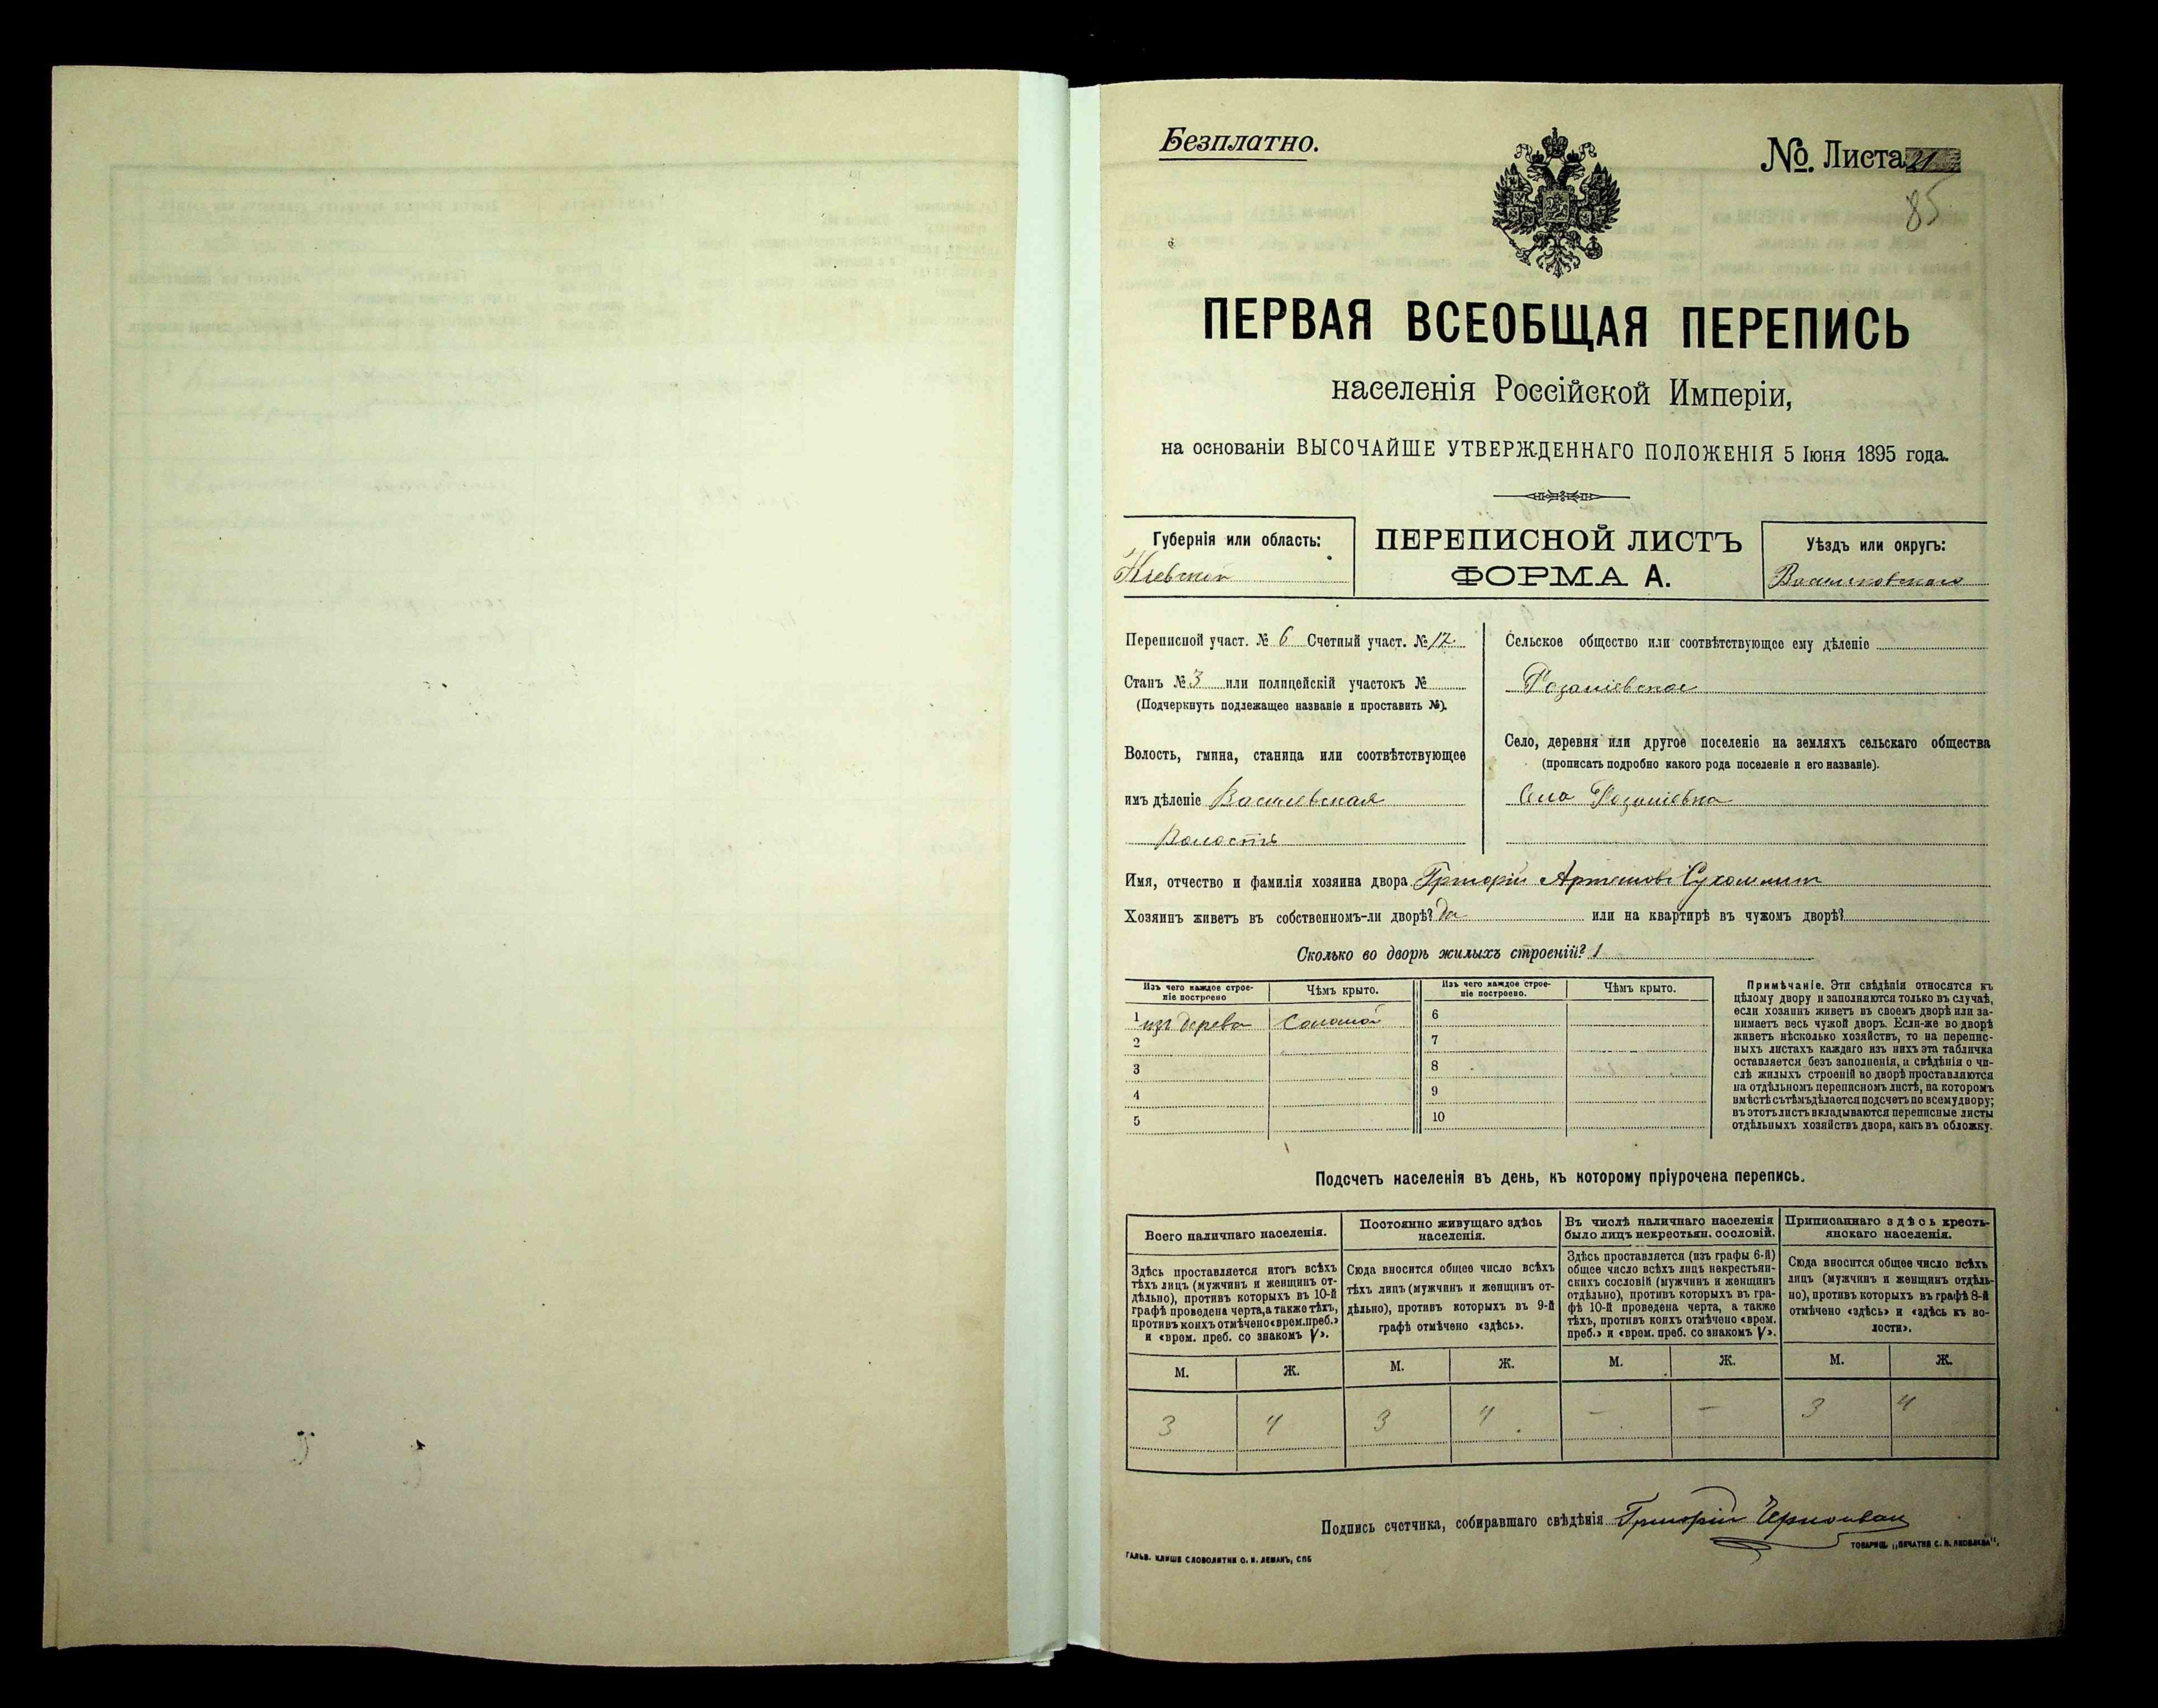 Безплатно.
№ Листа 21
85
ПЕРВАЯ ВСЕОБЩАЯ ПЕРЕПИСЬ
населенія Россійской Имперіи,
на основаніи ВЫСОЧАЙШЕ УТВЕРЖДЕННАГО ПОЛОЖЕНІЯ 5 Іюня 1895 года.
Губернія или область:
Кіевской
ПЕРЕПИСНОЙ ЛИСТЪ
ФОРМА А.
Уѣздъ или округъ:
Васильковскаго
Переписной участ. № 6 Счетный участ. № 12.
Станъ № 3 или полицейскій участокъ №
(Подчеркнуть подлежащее названіе и проставить №).
Волость, гмина, станица или соотвѣтствующее
имъ дѣленіе
Волость
Сельское общество или соотвѣтствующее ему дѣленіе
Село, деревня или другое поселеніе на земляхъ сельскаго общества
(прописать подробно какого рода поселеніе и его названіе).
Село
Имя, отчество и фамилія хозяина двора Григорій Артемовъ Сухомлин
Хозяинъ живетъ въ собственномъ-ли дворѣ? да или на квартирѣ въ чужомъ дворѣ?
Сколько во дворѣ жилыхъ строеній? 1
Изъ чего каждое строе-
ніе построено
Чѣмъ крыто.
1 изъ дерева Соломой
2
3
4
5
Изъ чего каждое строе-
ніе построено.
Чѣмъ крыто.
6
7
8
9
10
Примѣчаніе. Эти свѣдѣнія относятся къ
цѣлому двору и заполняются только въ случаѣ,
если хозяинъ живетъ въ своемъ дворѣ или за-
нимаетъ весь чужой дворъ. Если-же во дворѣ
живетъ нѣсколько хозяйствъ, то на перепис-
ныхъ листахъ каждаго изъ нихъ эта табличка
оставляется безъ заполненія, а свѣдѣнія о чи-
слѣ жилыхъ строеній во дворѣ проставляются
на отдѣльномъ переписномъ листѣ, на которомъ
вмѣстѣ съ тѣмъ дѣлается подсчетъ по всему двору;
въ этотъ листъ вкладываются переписные листы
отдѣльныхъ хозяйствъ двора, какъ въ обложку.
Подсчетъ населенія въ день, къ которому пріурочена перепись.
Всего наличнаго населенія.
Здѣсь проставляется итогъ всѣхъ
тѣхъ лицъ (мужчинъ и женщинъ от-
дѣльно), противъ которыхъ въ 10-й
графѣ проведена черта, а также тѣхъ,
противъ коихъ отмѣчено «врем. преб.»
и «врем. преб. со знакомъ V».
М. Ж.
3 4
Постоянно живущаго здѣсь
населенія.
Сюда вносится общее число всѣхъ
тѣхъ лицъ (мужчинъ и женщинъ от-
дѣльно), противъ которыхъ въ 9-й
графѣ отмѣчено «здѣсь».
М. Ж.
3 4
Въ числѣ наличнаго населенія
было лицъ некрестьян. сословій.
Здѣсь проставляется (изъ графы 6-й)
общее число всѣхъ лицъ некрестьян-
скихъ сословій (мужчинъ и женщинъ
отдѣльно), противъ которыхъ въ гра-
фѣ 10-й проведена черта, а также
тѣхъ, противъ коихъ отмѣчено «врем.
преб.» и «врем. преб. со знакомъ V».
М. Ж.
— —
Приписаннаго здѣсь кресть-
янскаго населенія.
Сюда вносится общее число всѣхъ
лицъ (мужчинъ и женщинъ отдѣль-
но), противъ которыхъ въ графѣ 8-й
отмѣчено «здѣсь» и «здѣсь къ во-
лости».
М. Ж.
3 4
Подпись счетчика, собиравшаго свѣдѣнія Григорій
ГАЛЬВ. КЛИШЕ СЛОВОЛИТНИ О. И. ЛЕМАНЪ, СПБ
ТОВАРИЩ. „ПЕЧАТНЯ С. П. ЯКОВЛЕВА".